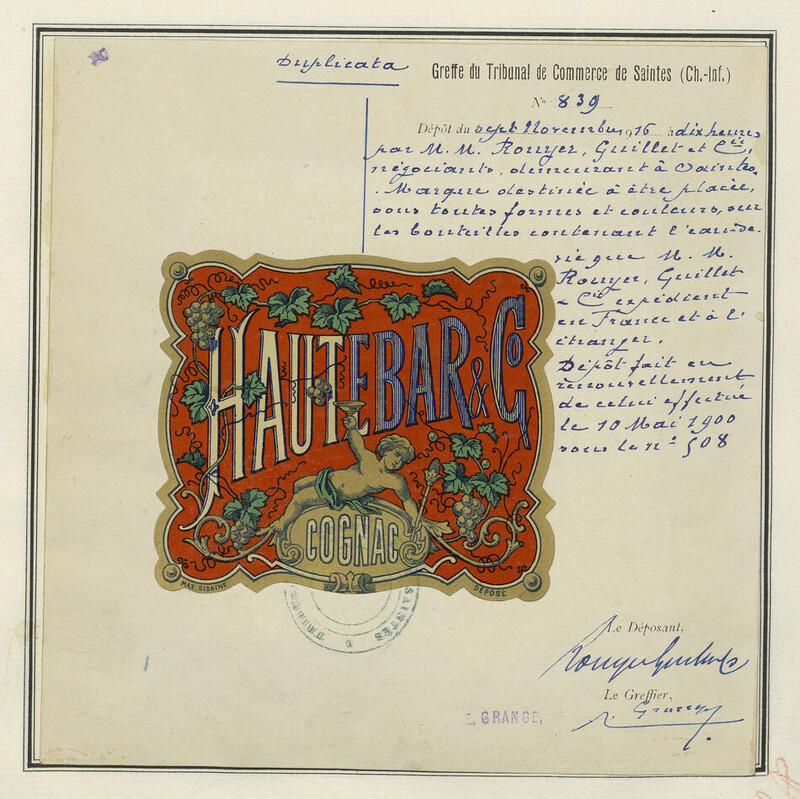 Duplicata
Greffe du Tribunal de Commerce de Saintes (Ch.-Inf.)
N° 839
Dépôt du sept Novembre 1916 à dix heures
par M. M. Rouyer, Guillet et Cie,
négociants, demeurant à Saintes.
Marque destinée à être placée,
sous toutes formes et couleurs, sur
les bouteilles contenant l'eau-de-
vie que M. M.
Rouyer, Guillet
& Cie expédient
en France et à l'
étranger.
Dépôt fait en
renouvellement
de celui effectué
le 10 Mai 1900
sous le n° 508
HAUTEBAR & Co
COGNAC
MAX SIDAINE
DÉPOSÉ
SAINTES
Le Déposant,
Rouyer Guillet & Co
Le Greffier,
E. GRANGE,